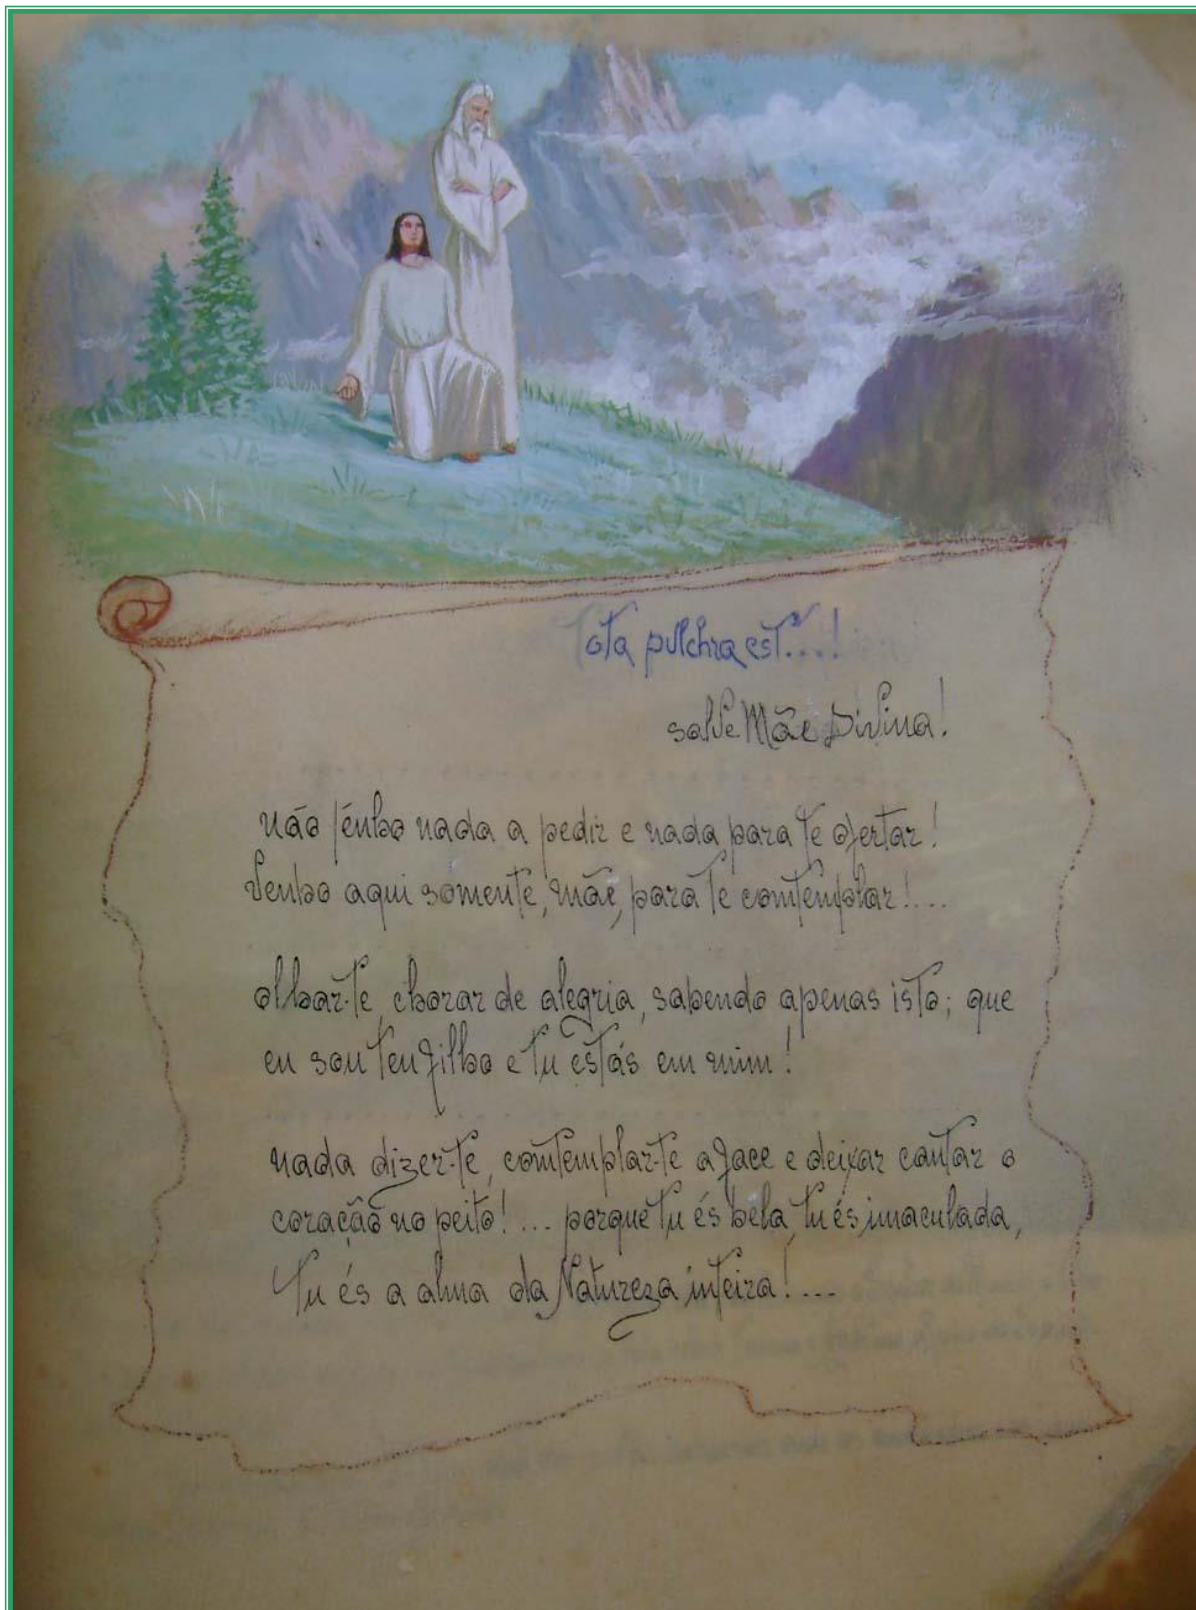 Tota pulchra est...!
salve Mãe Divina!
não tênho nada a pedir e nada para te ofertar!
Venho aqui somente, mãe, para te comtemplar!....
olhar-te, chorar de alegria, sabendo apenas isto; que
eu sou teu filho e tu estás em mim!
nada dizer-te, comtemplar-te a face e deixar cantar o
coração no peito! ... porque tu és bela, tu és imaculada,
tu és a alma da Natureza inteira!....